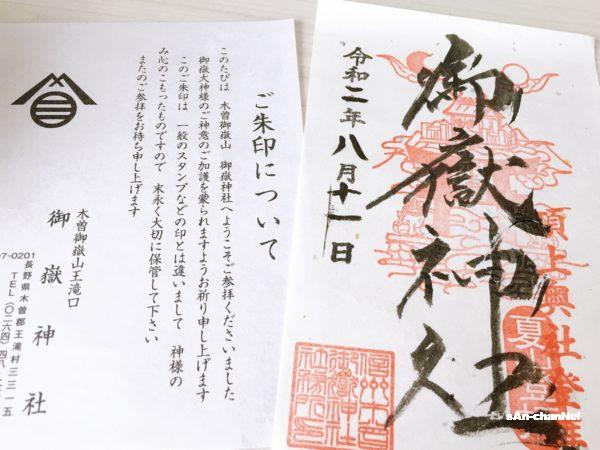 ご朱印について
このたびは 木曽御嶽山 御嶽神社へようこそご参拝くださいました
御嶽大神様のご神意のご加護を蒙られますようお祈り申し上げます
このご朱印は 一般のスタンプなどの印とは違いまして 神様の
み心のこもったものですので 末永く大切に保管して下さい
またのご参拝をお待ち申し上げます
木曽御嶽山王滝口
御嶽神社
97-0201
長野県木曽郡王滝村三三一五
TEL(〇二六四)四八
御嶽神社
令和二年八月十一日
頂上奥社登拝
夏山
sAn-chanNel